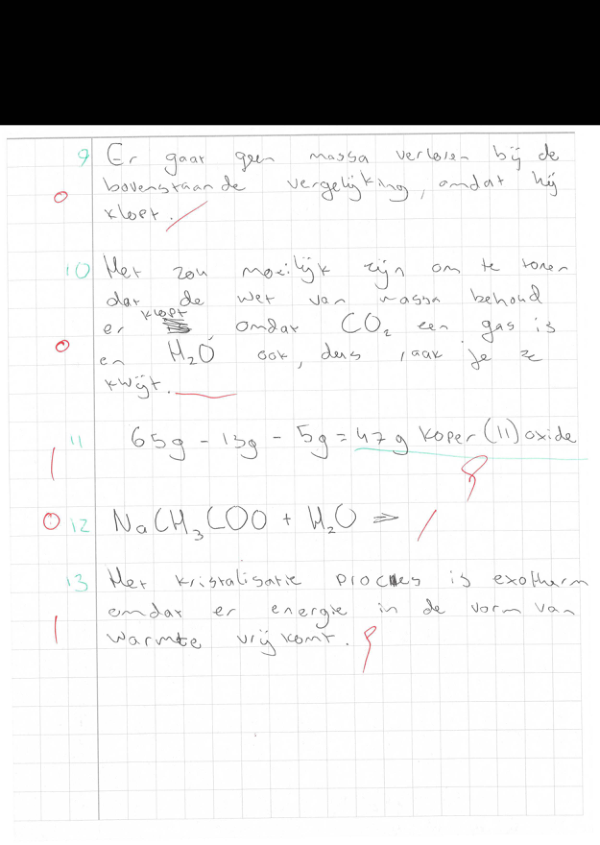 9 Er gaat geen massa verloren bij de
0 bovenstaande vergelijking, omdat hij
klopt.
10 Het zou moeilijk zijn om te tonen
dat de wet van massa behoud
er klopt omdat CO₂ een gas is
0 en H₂O ook, dus raak je ze
kwijt.
11 65g - 13g - 5g = 47 g koper (II) oxide
1
0 12 NaCH₃COO + H₂O ⇒
13 Het kristalisatie proces is exotherm
omdat er energie in de vorm van
1 warmte vrij komt.